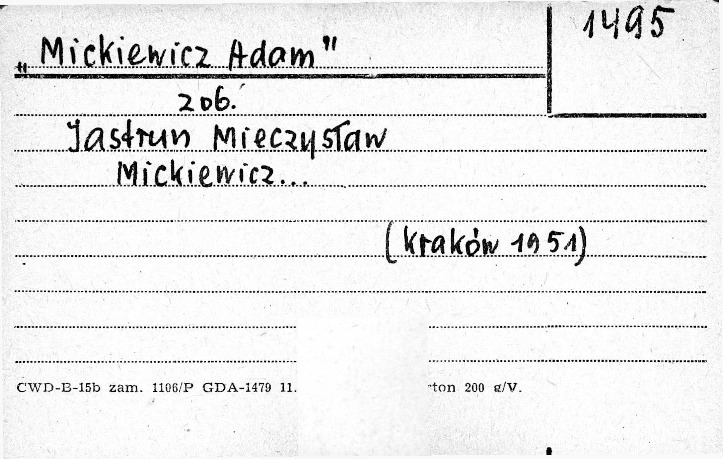 1495
„Mickiewicz Adam"
zob.
Jastrun Mieczysław
Mickiewicz...
(Kraków 1951)
CWD-B-15b zam. 1106/P GDA-1479 11. rton 200 g/V.